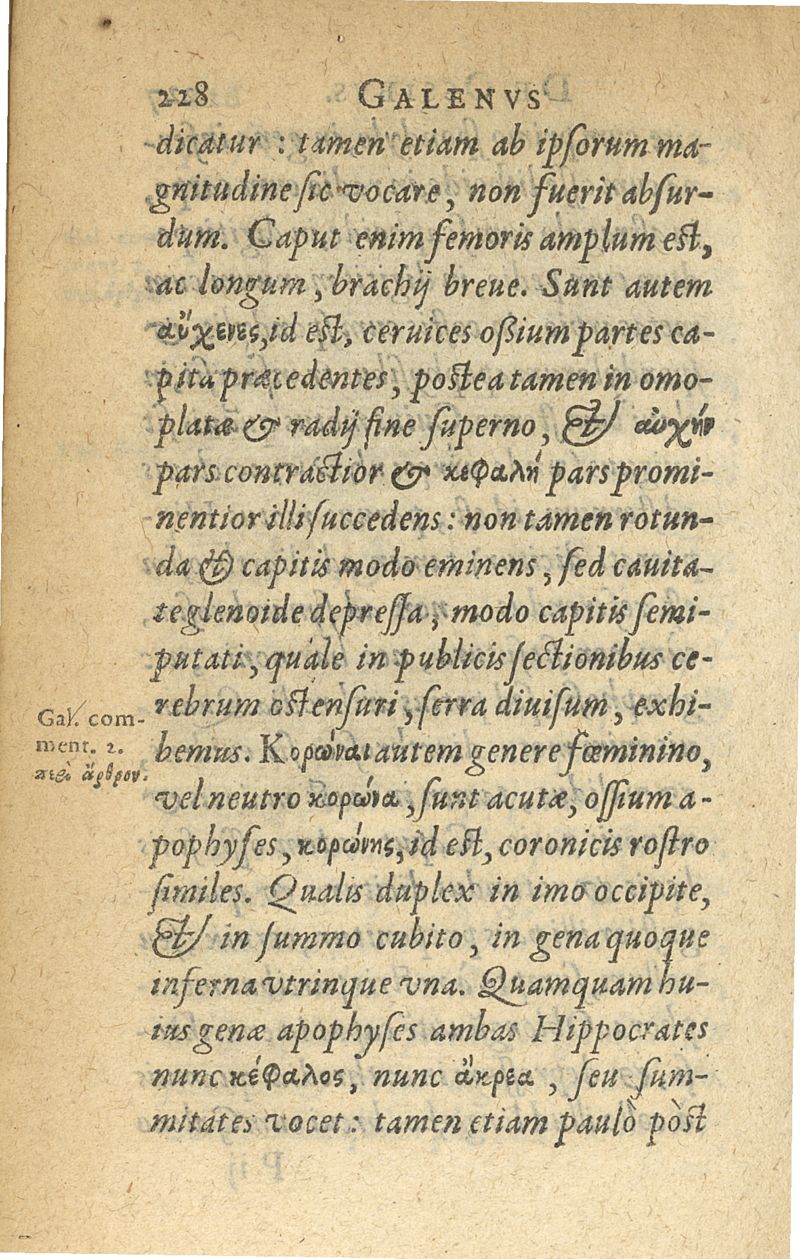 228 GALENVS
dicatur : tamen etiam ab ipſorum ma-
gnitudine ſic vocare, non fuerit abſur-
dum. Caput enim femoris amplum eſt,
ac longum, brachij breue. Sunt autem
αὔχενες, id eſt, ceruices oßium partes ca-
pita præcedentes, poſtea tamen in omo-
platæ & radij fine ſuperno, & αὐχήν
pars contractior & κεφαλή pars promi-
nentior illi ſuccedens : non tamen rotun-
da & capitis modo eminens, ſed cauita-
te glenoide depreſſa, modo capitis ſemi-
putati, quale in publicis ſectionibus ce-
rebrum oſtenſuri, ſerra diuiſum, exhi-
bemus. Κορῶναι autem genere fœminino,
vel neutro κορώνα, ſunt acutæ, oſſium a-
pophyſes, κορώνης, id eſt, coronicis roſtro
ſimiles. Qualis duplex in imo occipite,
& in ſummo cubito, in gena quoque
inferna vtrinque vna. Quamquam hu-
ius genæ apophyſes ambas Hippocrates
nunc κέφαλος, nunc ἄκρεα, ſeu ſum-
mitates vocet : tamen etiam paulò pòſt
Gal. com-
ment. 2.
περὶ ἄρθρον.